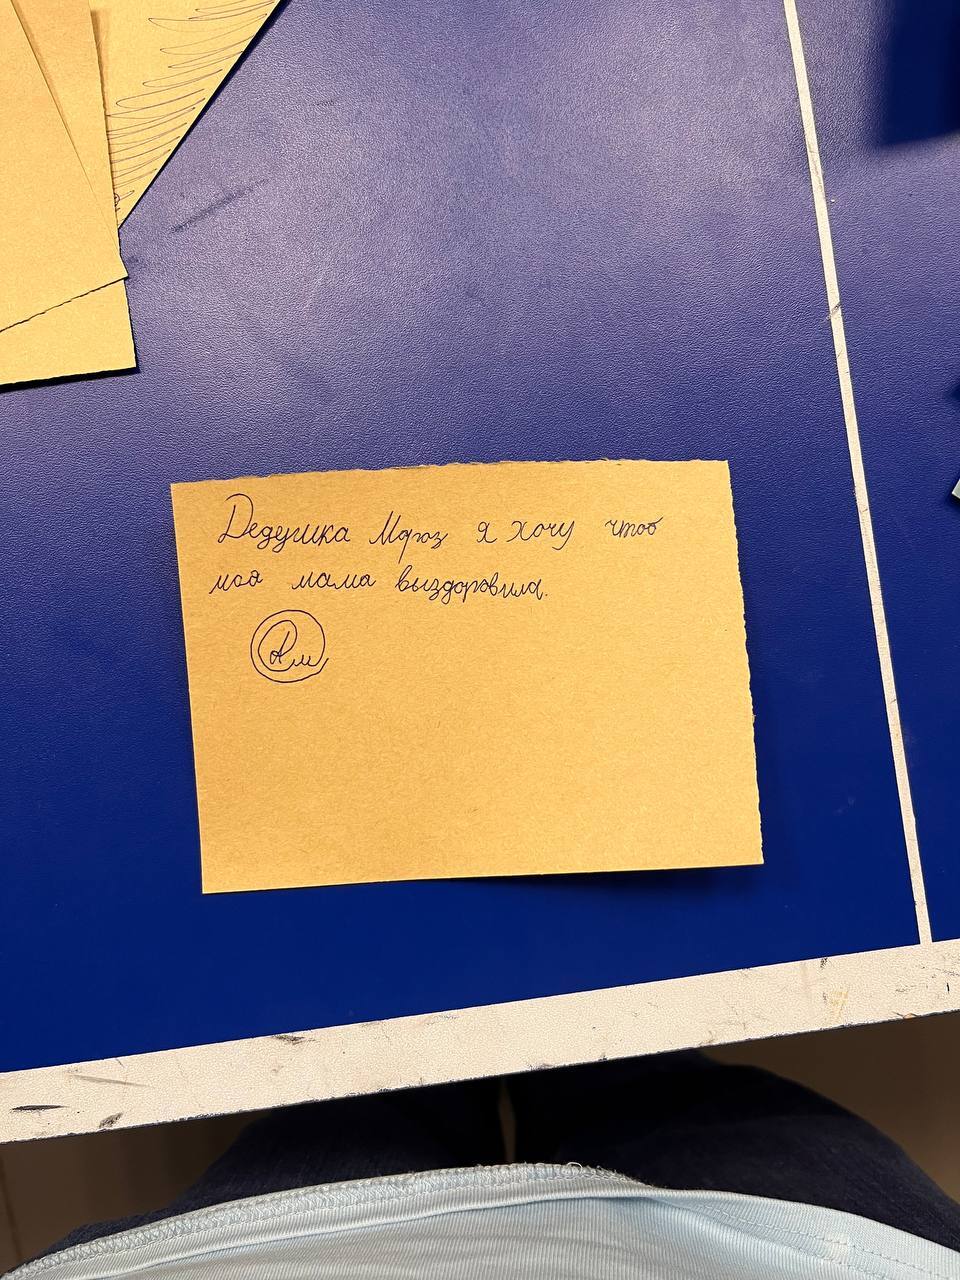 Дедушка Мороз я хочу чтоб
моя мама выздоровила.